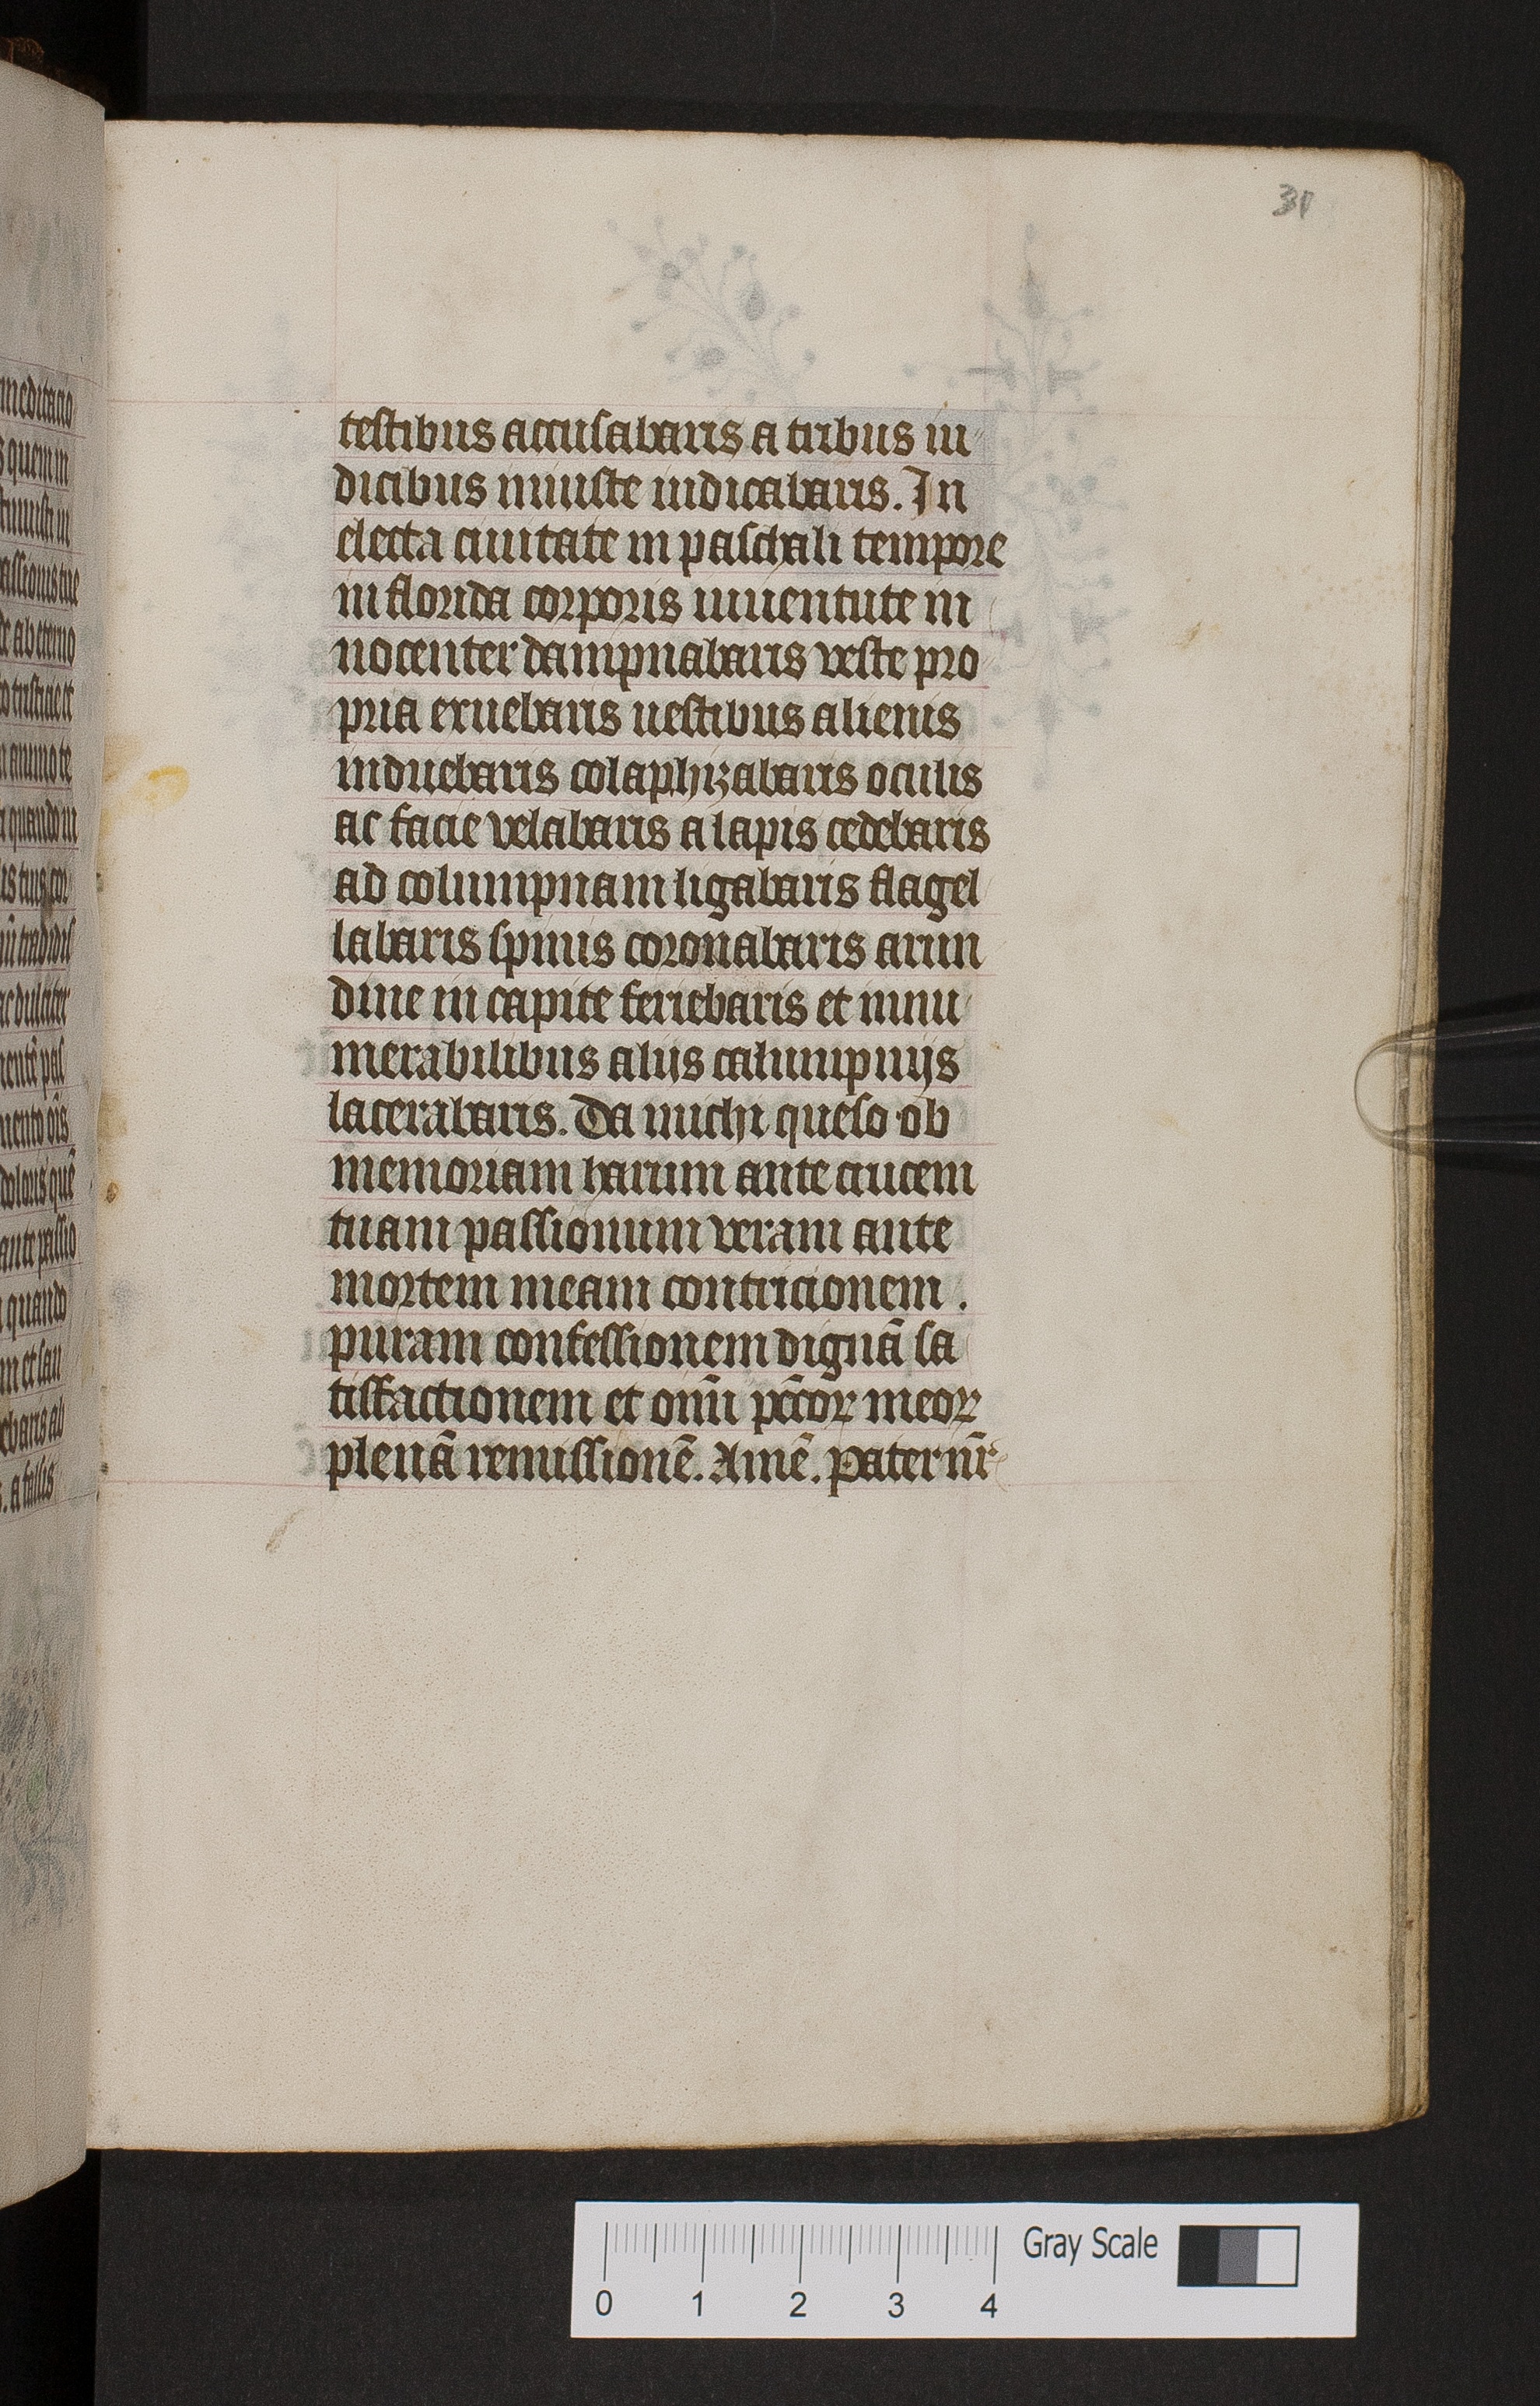 31
testibus accusabaris a tribus iu
dicibus iniuste iudicabaris. In
electa ciuitate in paschali tempore
in florida corporis iuuentute in
nocenter dampnabaris veste pro
pria exuebaris uestibus alienis
induebaris colaphizabaris oculis
ac facie velabaris alapis cedebaris
ad columpnam ligabaris flagel
labaris spinis coronabaris arun
dine in capite feriebaris et innu
merabilibus alijs calumpnijs
lacerabaris. Da michi queso ob
memoriam harum ante crucem
tuam passionum veram ante
mortem meam contricionem.
puram confessionem dignā sa
tisfactionem et oīm pccōꝝ meoꝝ
plenā remissionē. Amē. Pater nr̄
Gray Scale
0 1 2 3 4